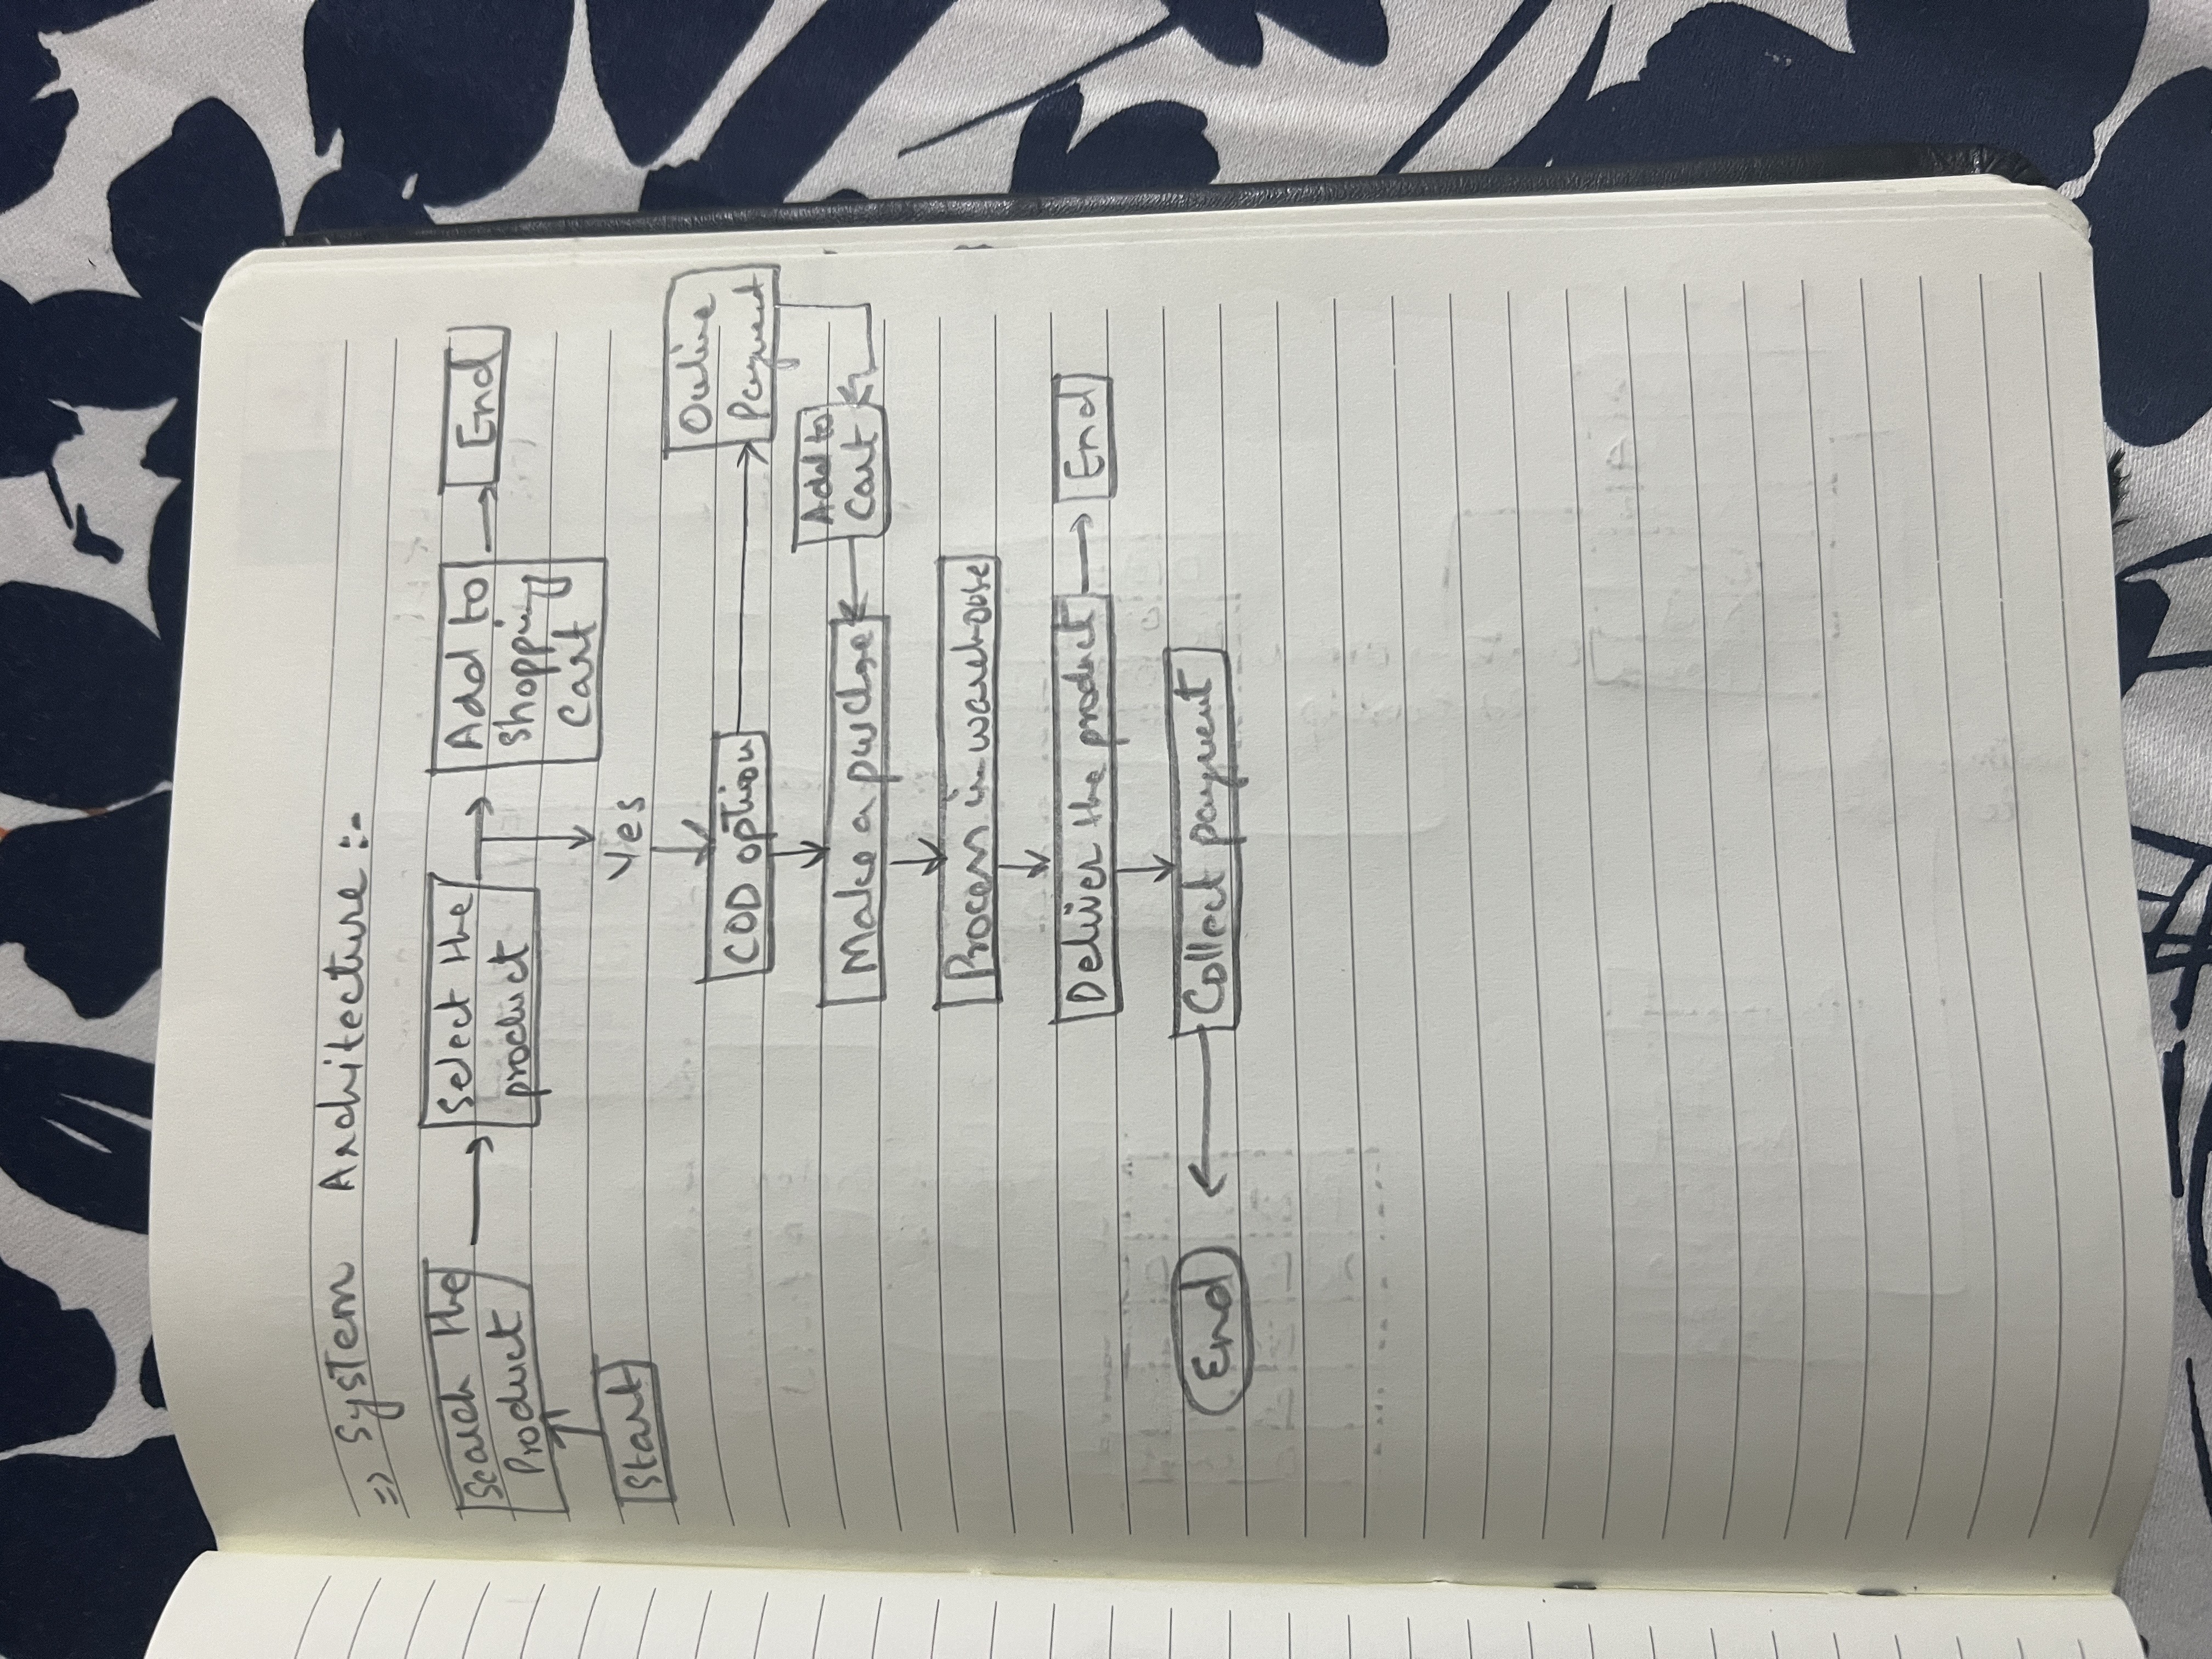 => System Architecture :-
Search the
Product
Select the
product
Add to
Shopping
Cart
End
Start
Yes
COD option
Online
Payment
Add to
Cart
Make a purchse
Process in warehouse
Deliver the product
End
Collect payment
End